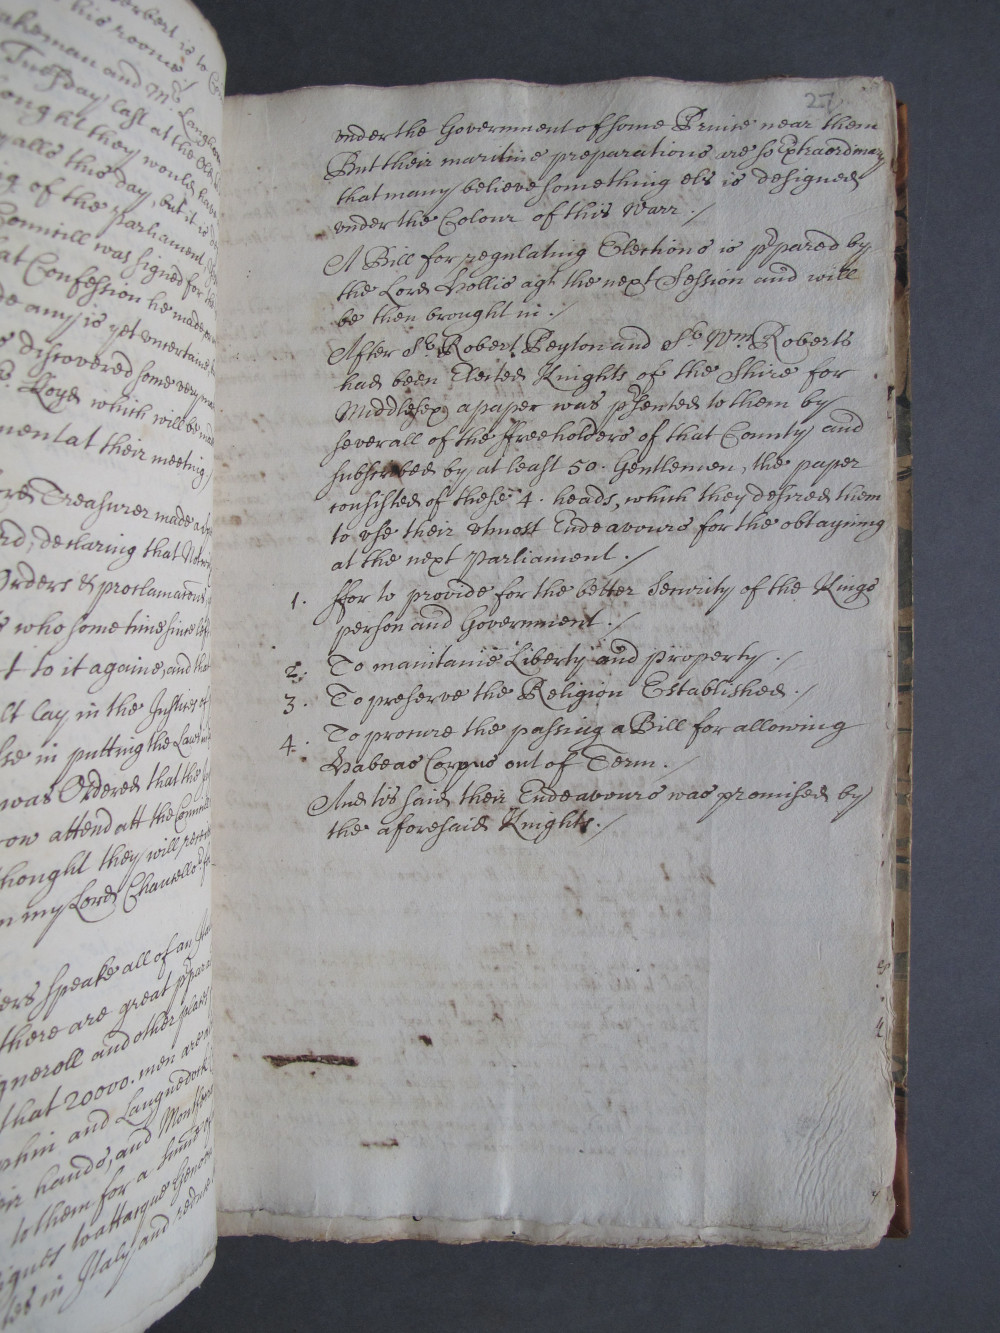 erbert is to
his roome
akeman and Mr. Langhor
Tuesday last at the Old
ought they would have
alls this day, but it is
g of the Parliament
Councill was signed for the
at Confession he made
de any is yet uncertaine
discovered some very
Loyd which will be made
ment at their meeting
ord Treasurer made a
rd, declaring that Notw
Orders & proclamacons
s who sometime since
t to it againe, and that
lt lay in the Justices of
lse in putting the Laws
was Ordered that the
on attend att the Councill
thought they will
m my Lord Chancellor
ers speake all of an
there are great p'para
gneroll and other places
that 20000. men are
phin and Languedock
eir hands, and Montfer
to them for a summ of
ignes to attaque Genoa
les in Italy and reduce
27
vnder the Government of some Prince near them
But their maritime preparations are so Extraordinary
that many believe something els is designed
vnder the Colour of this Warr./
A Bill for regulating Elections is p'pared by
the Lord Hollis agt the next Session and will
be then brought in./
After Sr. Robert Peyton and Sr. Wm. Roberts
had been Elected Knights of the Shire for
Middlesex, a paper was p'sented to them by
severall of the ffreeholders of that County and
subscribed by at least 50. Gentlemen, the paper
consisted of these 4. heads, which they desired them
to vse their vtmost Endeavours for the obtayning
at the next Parliament./
1. ffor to provide for the better Security of the Kings
person and Government./
2. To maintaine Liberty and Property./
3. To preserve the Religion Established./
4. To procure the passing a Bill for allowing
Habeas Corpus out of Term./
And tis said their Endeavours was promised by
the aforesaid Knights./